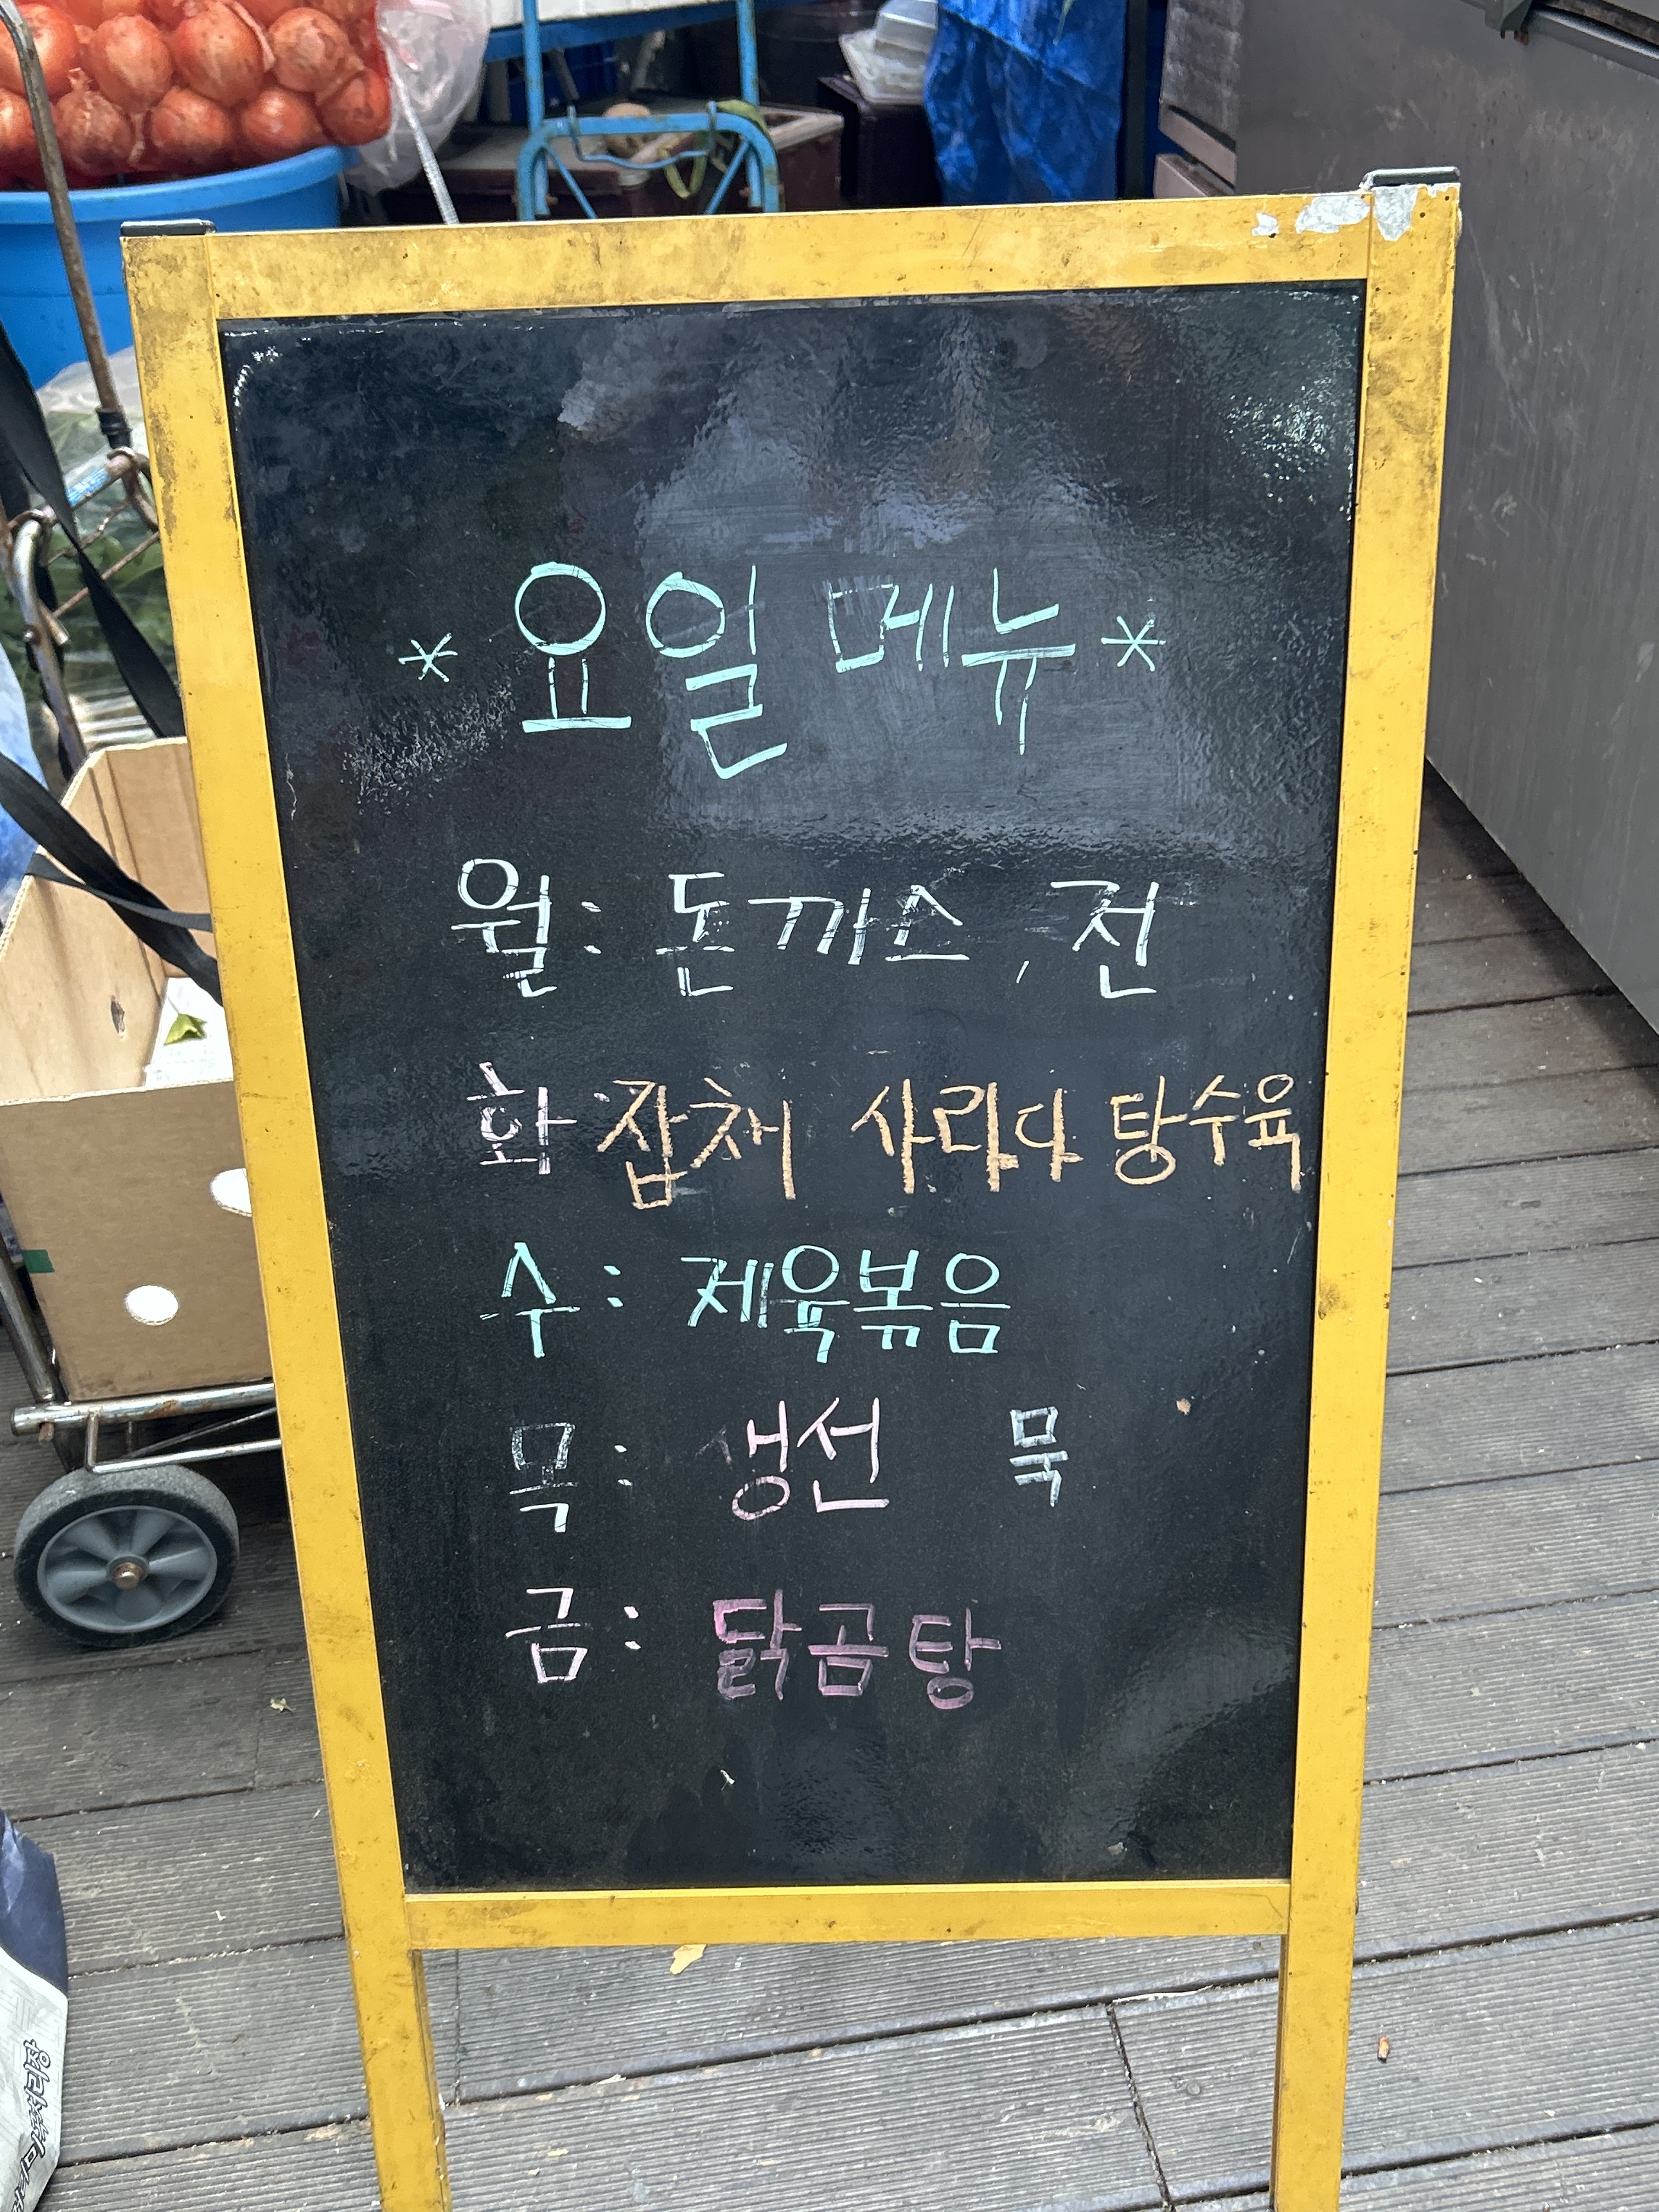 * 요일 메뉴 *
월: 돈까스, 전
화: 잡채 사라다 탕수육
수: 제육볶음
목: 생선 묵
금: 닭곰탕